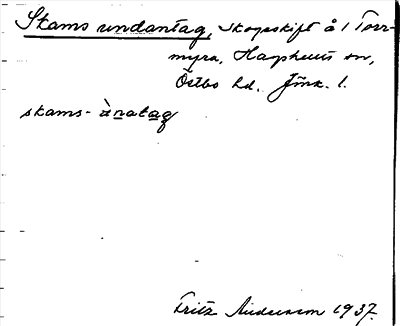 Skams undantag, skogsskift å 1 Torr-
myra, Hagshults sn,
Östbo hd. Jönk. l.
skams- ànatag
Fritz Anderson 1937.